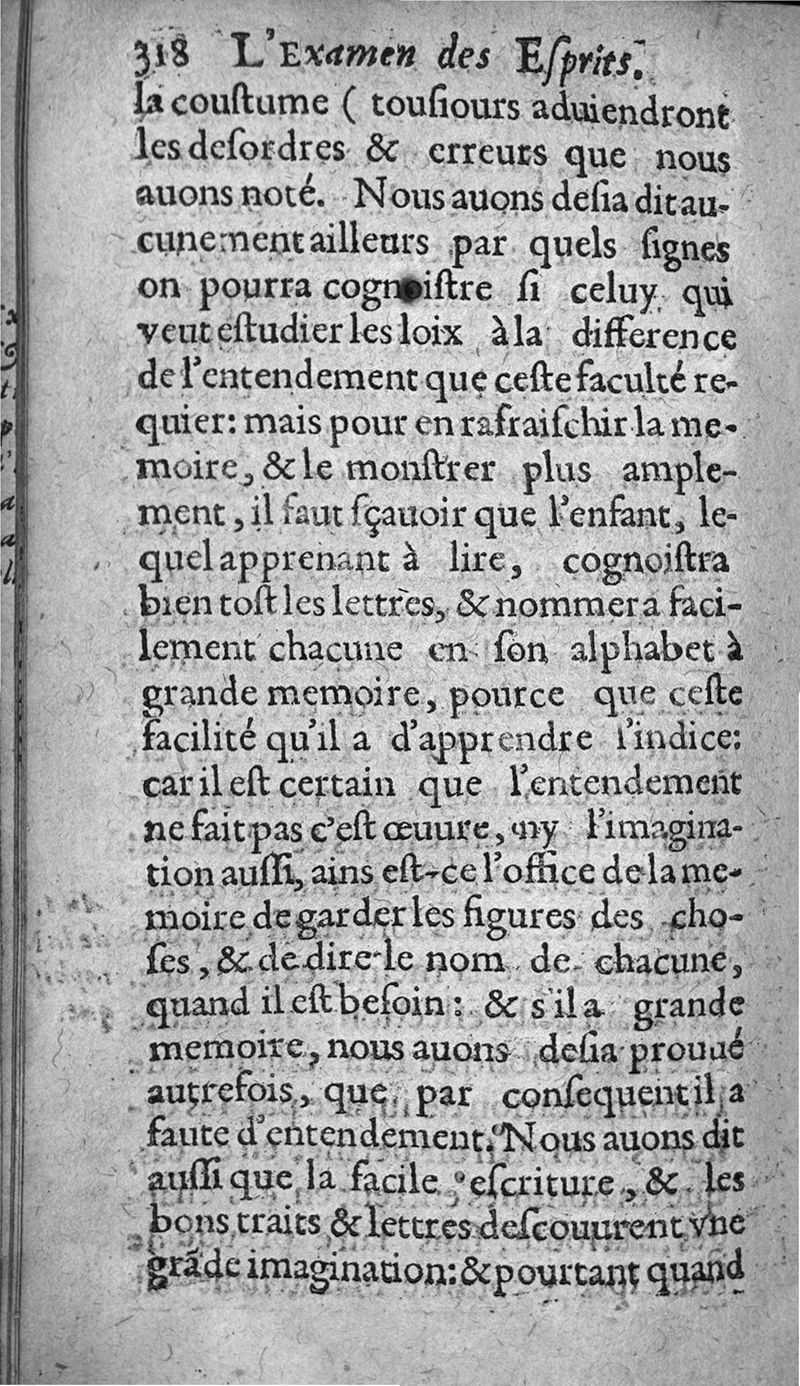 318 L'Examen des Eſprits.
la couſtume ( touſiours aduiendront
les deſordres & erreurs que nous
auons noté. Nous auons deſia dit au-
cunement ailleurs par quels ſignes
on pourra cognoiſtre ſi celuy qui
veut eſtudier les loix à la difference
de l'entendement que ceſte faculté re-
quier: mais pour en rafraiſchir la me-
moire, & le monſtrer plus ample-
ment, il faut ſçauoir que l'enfant, le-
quel apprenant à lire, cognoiſtra
bien toſt les lettres, & nommera faci-
lement chacune en ſon alphabet à
grande memoire, pource que ceſte
facilité qu'il a d'apprendre l'indice:
car il eſt certain que l'entendement
ne fait pas c'eſt œuure, ny l'imagina-
tion auſſi, ains eſt-ce l'office de la me-
moire de garder les figures des cho-
ſes, & de dire le nom de chacune,
quand il eſt beſoin: & s'il a grande
memoire, nous auons deſia prouué
autrefois, que par conſequent il a
faute d'entendement. Nous auons dit
auſſi que la facile eſcriture, & les
bons traits & lettres deſcouurent vne
grāde imagination: & pourtant quand